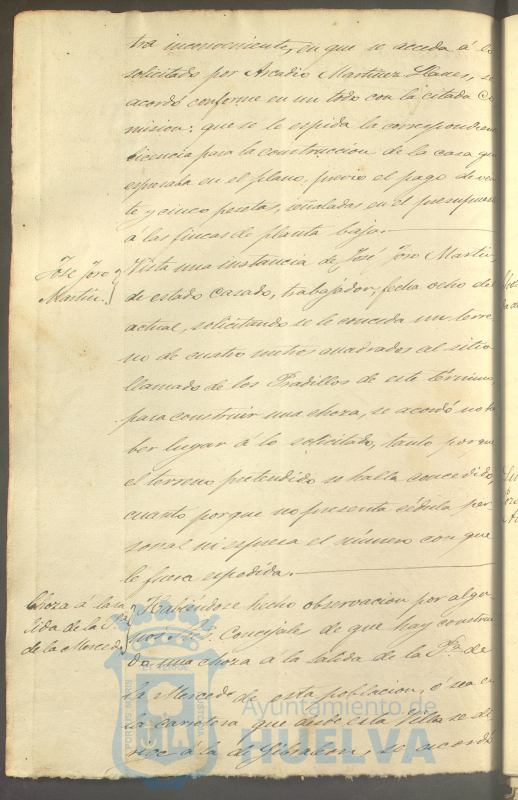 tra inconveniente, en que se acceda á lo
solicitado por Arcadio Martinez Llanes, se
acordó conforme en un todo con la citada Co
mision: que se le espida la correspondiente
licencia para la construccion de la casa que
espresaba en el plano, previo el pago de vein
te y cinco pesetas, señaladas en el presupuesto
á las fincas de planta baja.
José Toro
Martin.
Vista una instancia de José Toro Martin,
de estado Casado, trabajador, fecha ocho del
actual, solicitando se le conceda un terre
no de cuatro metros cuadrados al sitio
llamado de los Pradillos de este término,
para construir una choza, se acordó no ha
ber lugar á lo solicitado, tanto porque
el terreno pretendido se halla concedido,
cuanto porque no presenta cédula per
sonal ni espresa el número con que
le fuera espedida.
Choza á la sa
lida de la Pta
de la Merced
Habiéndose hecho observacion por algu
nos Sres. Concejales de que hay construi
da una choza á la salida de la Pta de
la Merced de esta poblacion, ó sea en
la carretera que desde esta Villa se di
rige á la de Gibraleon, se acordó
Ayuntamiento de
HUELVA